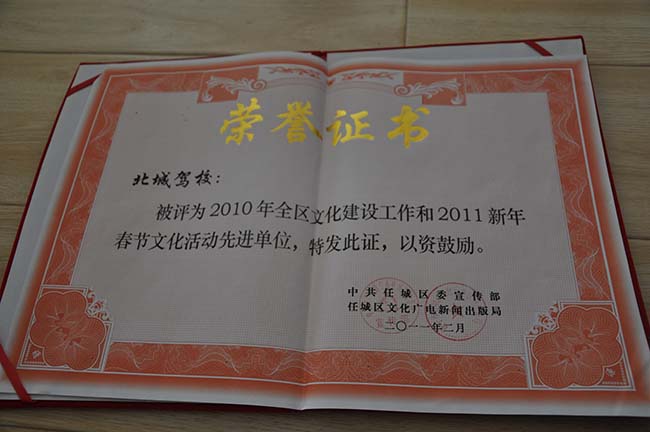 荣誉证书
北城驾校：
被评为2010年全区文化建设工作和2011新年
春节文化活动先进单位，特发此证，以资鼓励。
中共任城区委宣传部
任城区文化广电新闻出版局
二〇一一年二月